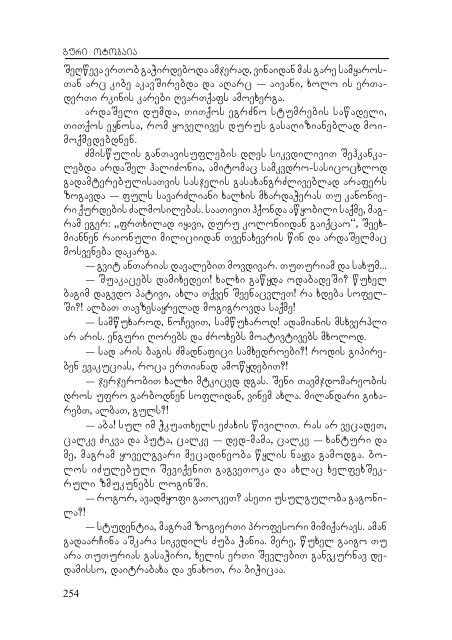 გური ოტობაია
შეღწევა ერთობ გაჰირდებოდა ამჯერად, ვინაიდან მას გარე სამყაროს-
თან არც კიბე აკავშირებდა და აღარც — აივანი, ხოლო ის ერთა-
დერთი რკინის კარები ღვართქაფს ამოეხერგა.
არდაშელი დუმდა, თითქოს ეგრძნო სტუმრების საწადელი,
თითქოს ეყნოსა, რომ ყოველივეს დურუს გასაღიზიანებლად მოი-
მოქმედებდნენ.
ძმისწულის განთავისუფლების დღეს სიკვდილივით შეჰკანკა-
ლებდა არდაშელ ჰალიძონია, ამიტომაც სამკვდრო-სასიცოცხლოდ
გადამტერებულისათვის სასჯელის გასახანგრძლივებლად არაფერს
ზოგავდა — ფულს სავარძლიანი ხალხის მხარდაჭერას თუ კანონიე-
რი ქურდების ძალმოსილებას. საათივით ჰქონდა აწყობილი საქმე, მაგ-
რამ ეგერ: „ფრთხილად იყავი, დურუ კოლონიიდან გაიქცაო“, შეეხ-
მიანნენ რაიონული მილიციიდან თვენახევრის წინ და არდაშელმაც
მოსვენება დაკარგა.
— გვიტ ანთარიას დავალებით მოვდივარ. თუთურიამ და სახუმ...
— შუაკაცებს დამიხედეთ! ხალხი გაწყდა ოდაბადეში? წუხელ
ბაგიმ დაგვდო პატივი, ახლა თქვენ შეენაცვლეთ! რა ხდება სოფელ-
ში?! ალბათ თავზესაყრელად მოგიგროვდა საქმე!
— სამწუხაროდ, ნოჩევით, სამწუხაროდ! ადამიანის მსხვერპლი
არ არის. ენგური ღორებს და ძროხებს მოატივტივებს მხოლოდ.
— სად არის ბაგის ძმადნაფიცი სამხედროები?! როდის გიპირე-
ბენ ევაკუციას, როცა ერთიანად ამოწყდებით?!
— ჯერჯერობით ხალხი მტკიცედ დგას. შენი თავმჯდომარეობის
დროს უფრო გარბოდნენ სოფლიდან, ვინემ ახლა. მილანდარი გიხა-
რებთ, ალბათ, გულს?!
— აბა! სულ იმ ჰკუათხელს ეძახის წივილით. რას არ ვეცადეთ,
ცალკე ძიკვა და პუტა, ცალკე — დედ-მამა, ცალკე — ხანტური და
მე, მაგრამ ყოველგვარი მეცადინეობა წყლის ნაყვა გამოდგა. ბო-
ლოს იძულებული შევიქენით გაგვეთოკა და ახლაც ხელფეხშეკ-
რული ზმუკუნებს ლოგინში.
— როგორ, ავადმყოფი გათოკეთ? ასეთი უსულგულობა გაგონი-
ლა?!
— სტუდენტია, მაგრამ ზოგიერთი პროფესორი მიმიქარავს. ამან
გადაარჩინა აშკარა სიკვდილს ძუბა ჰანია. მერე, წუხელ გაიგო თუ
არა თუთურიას გასაჭირი, ხელის ერთი შევლებით განვკურნავ დე-
დამისსო, დაიტრაბახა და ვნახოთ, რა ბიჭიცაა.
254